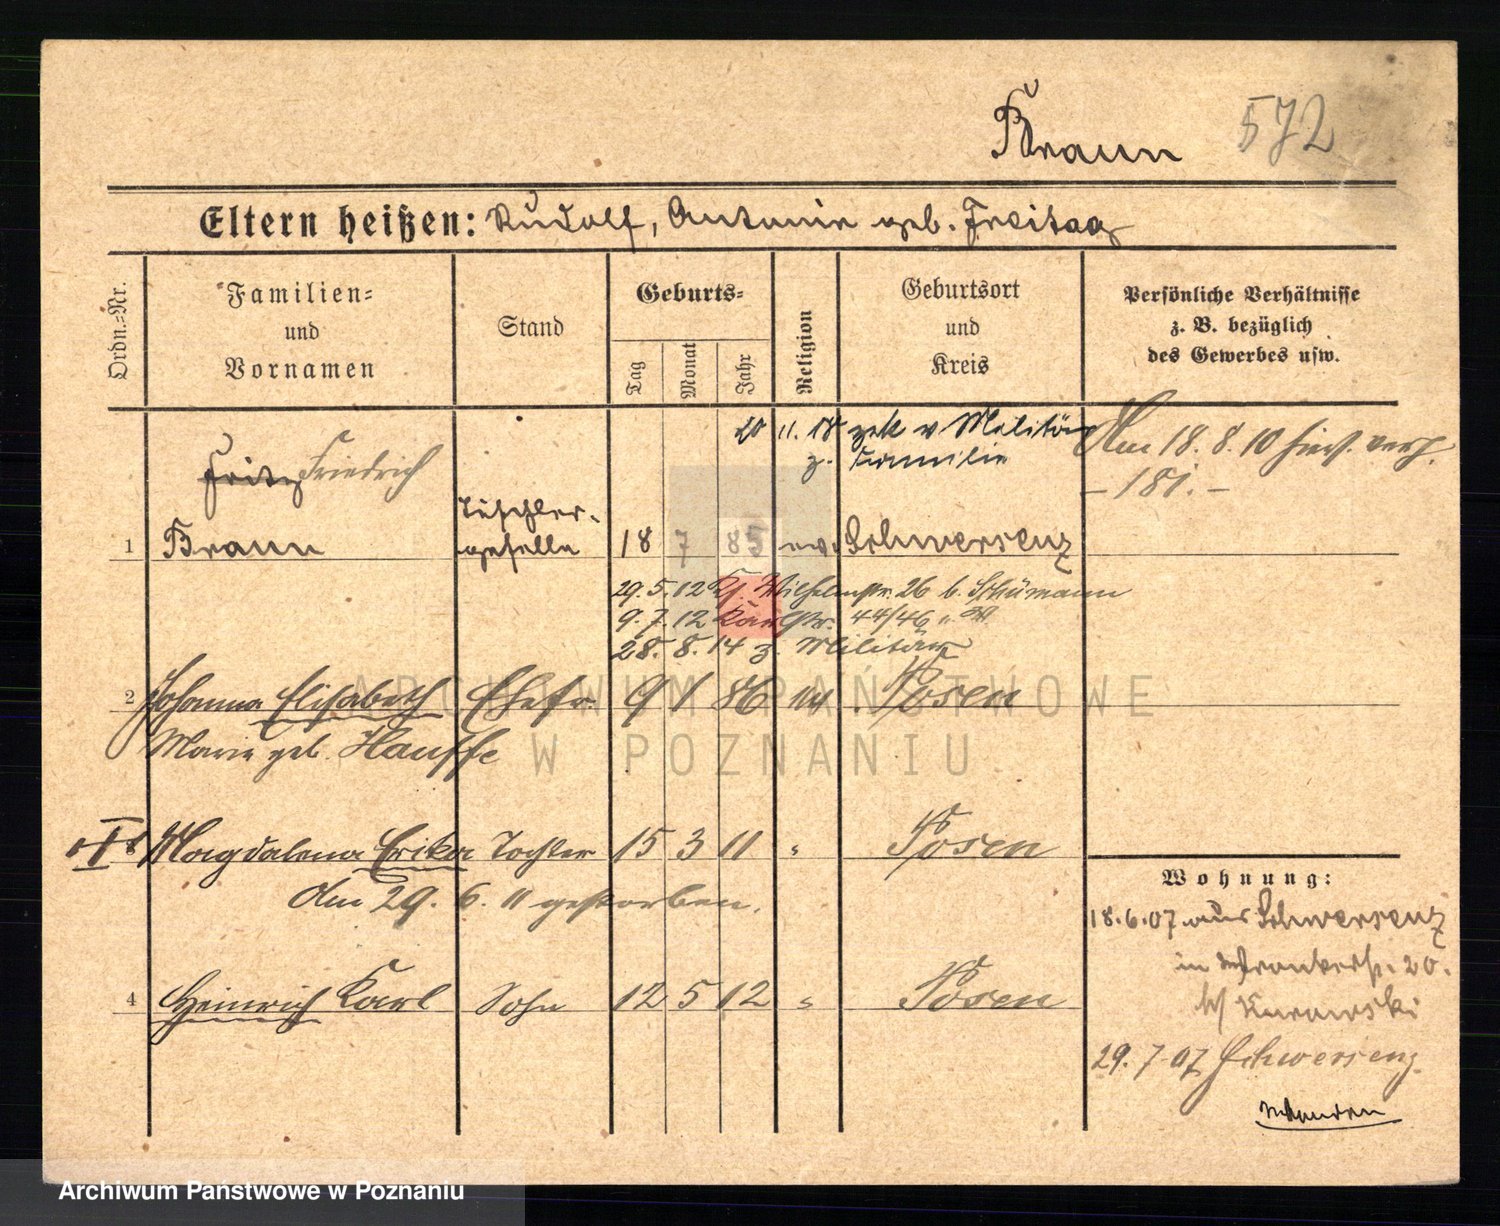 Braun 572
Eltern heißen: Rudolf, Antonie geb. Freitag
Ordn.=Nr.
Familien=
und
Vornamen
Stand
Geburts=
Tag
Monat
Jahr
Religion
Geburtsort
und
Kreis
Persönliche Verhältnisse
z. B. bezüglich
des Gewerbes usw.
20 11. 18 zck v Militär
z. Familie
Am 18. 8. 10 hies. verh.
- 181. -
Fritz Friedrich
Tischler-
1 Braun geselle 18 7 85 ev. Schwersenz
29. 5. 12 Kl. Wilhelmstr. 26 b. Schümann
9. 7. 12 Karlstr. 44/46 " W
28. 8. 14 z. Militär
2 Johanna Elisabeth Ehefr. 9 1 86 Posen
Marie geb. Hauffe
Magdalena Erika Tochter 15 3 11 " Posen
den 29. 6. 11 gestorben.
4 Heinrich Karl Sohn 12 5 12 " Posen
Wohnung:
18. 6. 07 aus Schwersenz
in 20.
b/ Kurowski
29. 7. 07 Schwersenz
ARCHIWUM PAŃSTWOWE
W POZNANIU
Archiwum Państwowe w Poznaniu